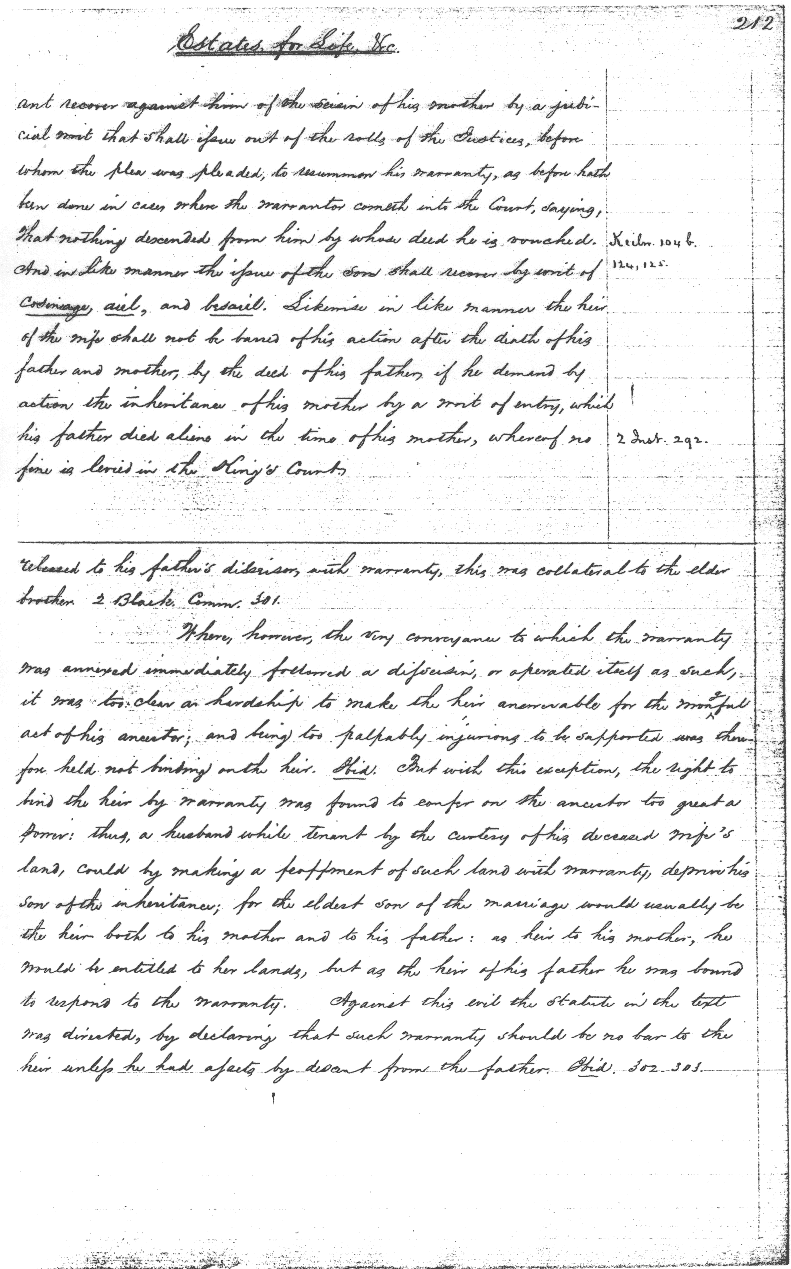 212
Estates for Life, &c.
ant recover against him of the seisin of his mother by a judi-
cial writ that shall issue out of the rolls of the Justices, before
whom the plea was pleaded, to resummon his warranty, as before hath
been done in cases where the warrantor cometh into the Court, saying,
that nothing descended from him by whose deed he is vouched.
Keilw. 104 b.
And in like manner the issue of the son shall recover by writ of
124, 125.
cosinage, aiel, and besaiel. Likewise in like manner the heir
of the wife shall not be barred of his action after the death of his
father and mother, by the deed of his father, if he demand by
action the inheritance of his mother by a writ of entry, which
his father did aliene in the time of his mother, whereof no
2 Inst. 292.
fine is levied in the King's Court.
released to his father's disseisor, with warranty, this was collateral to the elder
brother. 2 Black. Comm. 301.
Where, however, the very conveyance to which the warranty
was annexed immediately followed a disseisin, or operated itself as such,
it was too clear a hardship to make the heir answerable for the wrongful
act of his ancestor; and being too palpably injurious to be supported was there-
fore held not binding on the heir. Ibid. But with this exception, the right to
bind the heir by warranty was found to confer on the ancestor too great a
power: thus, a husband while tenant by the curtesy of his deceased wife's
land, could by making a feoffment of such land with warranty, deprive his
son of the inheritance; for the eldest son of the marriage would usually be
the heir both to his mother and to his father: as heir to his mother, he
would be entitled to her lands, but as the heir of his father he was bound
to respond to the warranty. Against this evil the statute in the text
was directed, by declaring that such warranty should be no bar to the
heir unless he had assets by descent from the father. Ibid. 302 303.